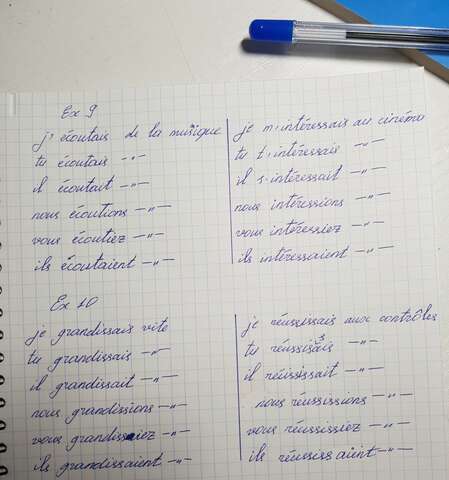 Ex 9
j, écoutais de la musique
tu écoutais —"—
il écoutait —"—
nous écoutions —"—
vous écoutiez —"—
ils écoutaient —"—
je m, intéressais au cinéma
tu t, intéressais —"—
il s, intéressait —"—
nous intéressions —"—
vous intéressiez —"—
ils intéressaient —"—
Ex 10
je grandissais vite
tu grandissais —"—
il grandissait —"—
nous grandissions —"—
vous grandissiez —"—
ils grandissaient —"—
je réussissais aux contrôles
tu réussisais —"—
il réussissait —"—
nous réussissions —"—
vous réussissiez —"—
ils réussissaient —"—